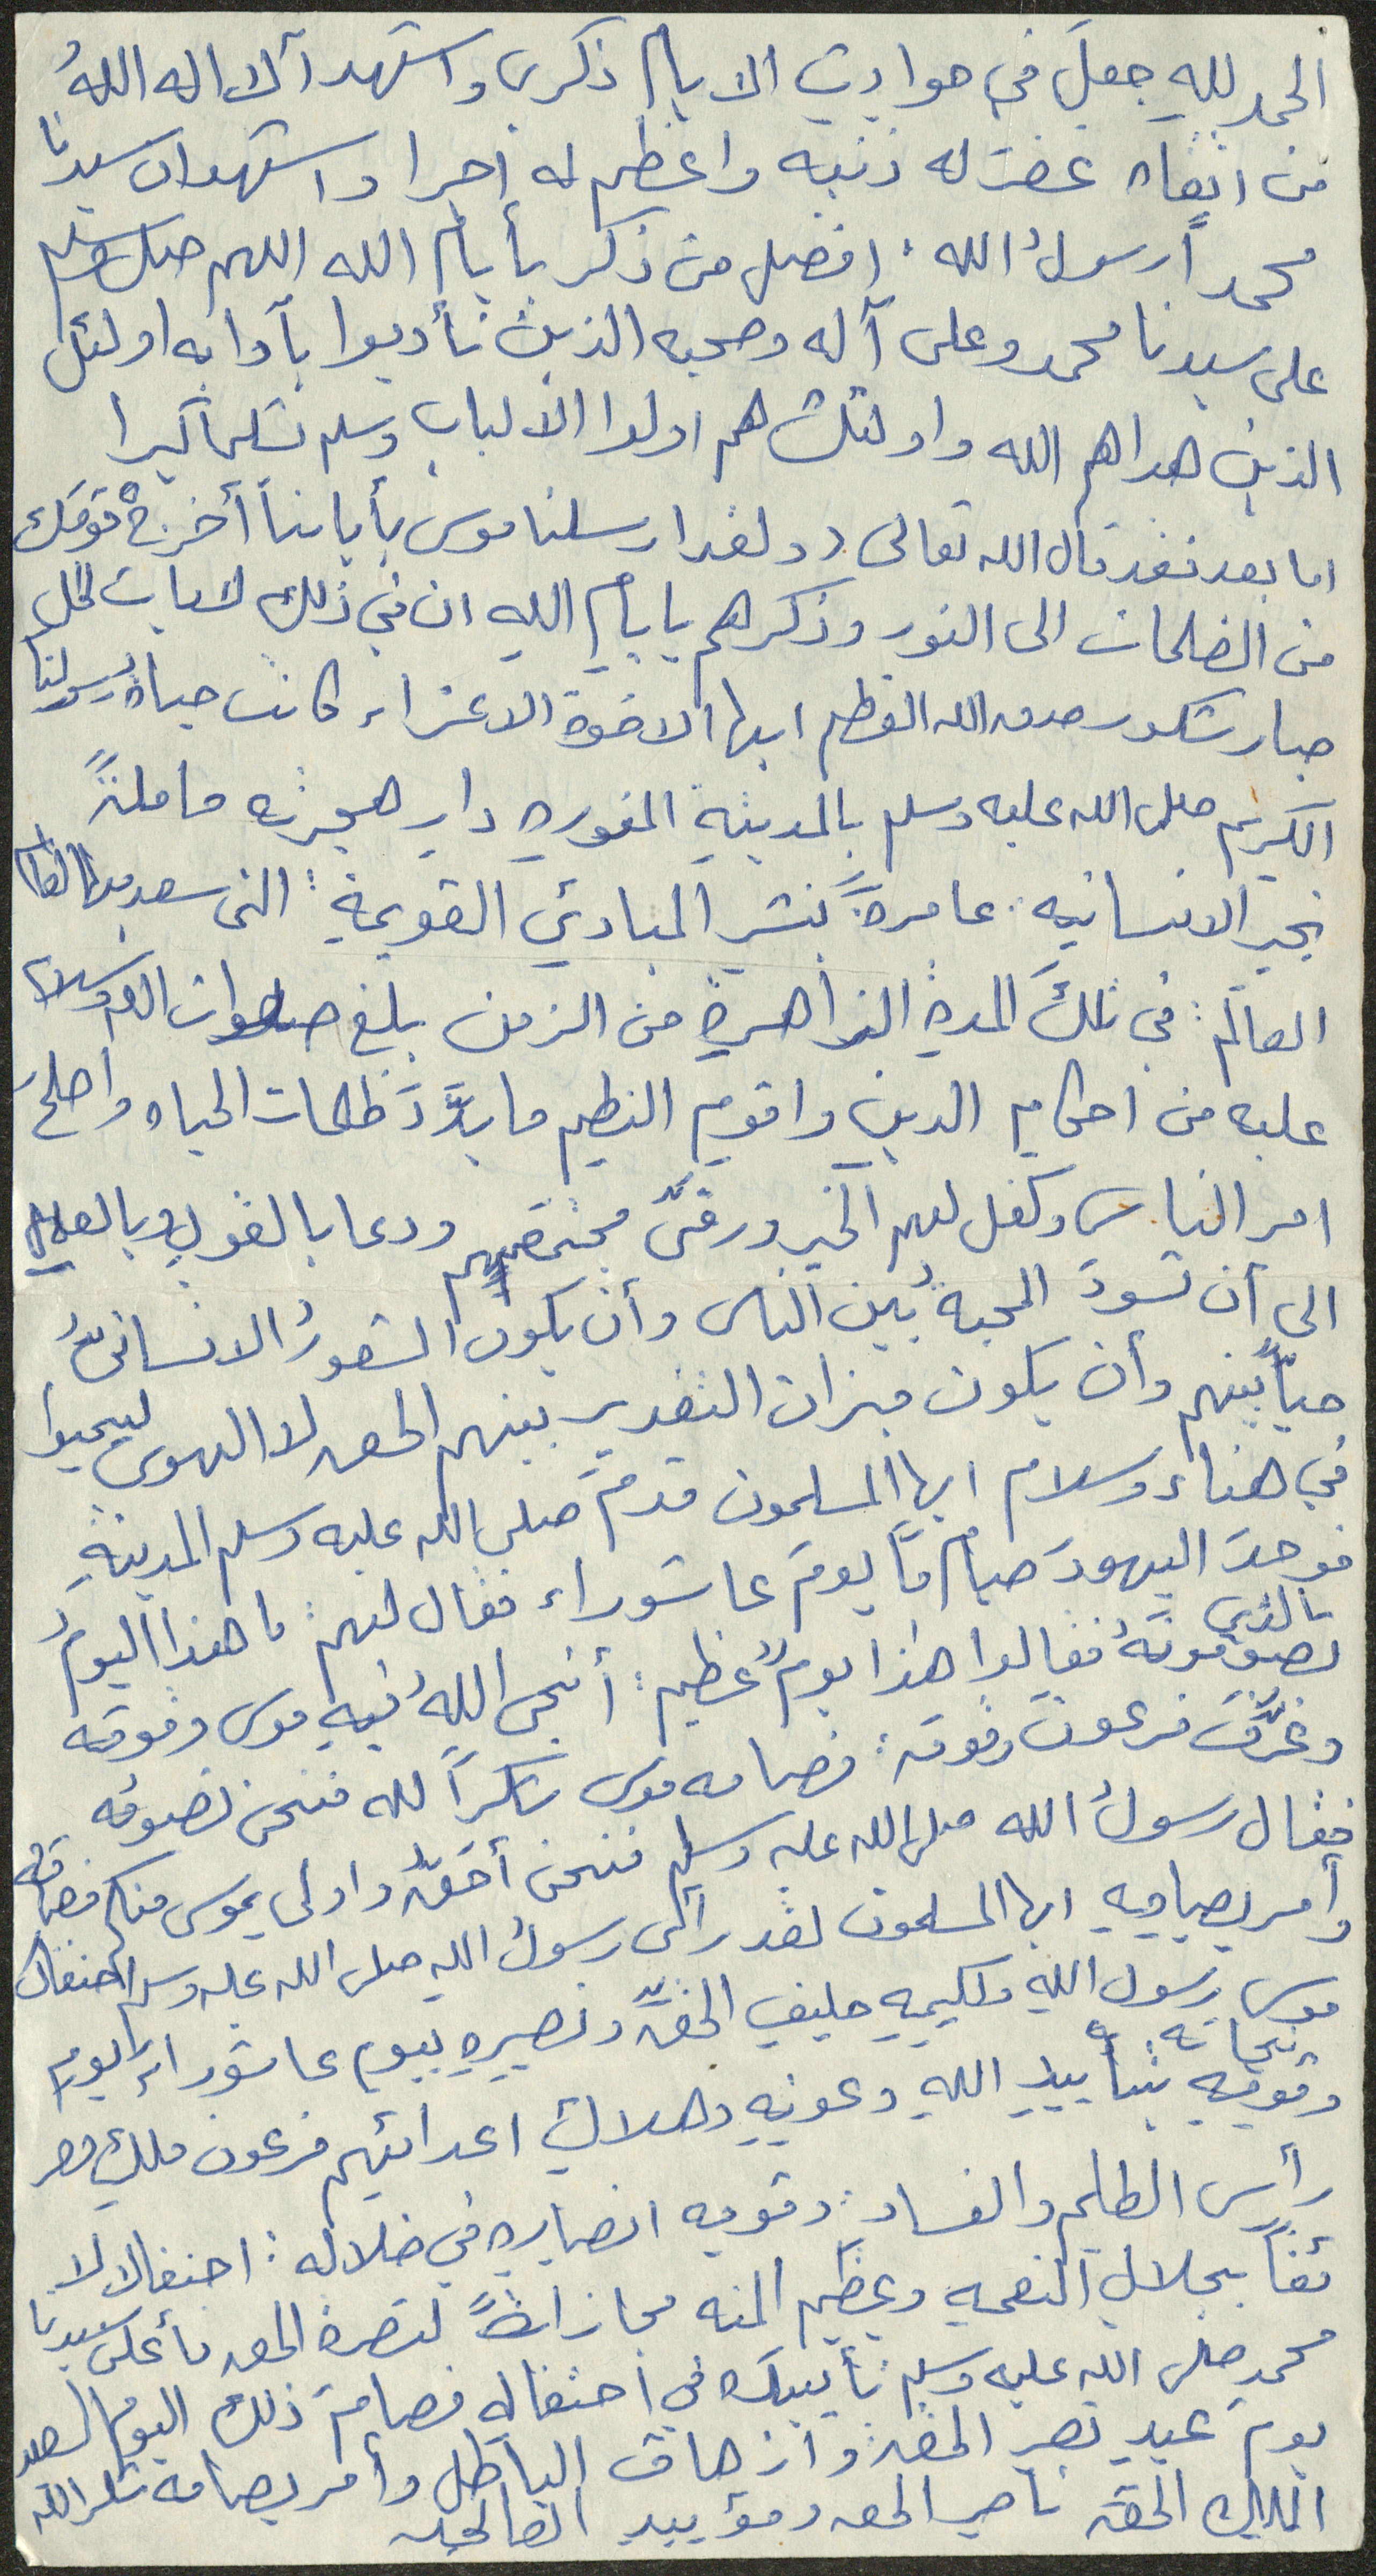 الحمد لله جعل في حوادث الايام ذكرى واشهد آلا اله الا اللهُ
من اتقاه غفر له ذنبه واعظم له اجرا واشهد ان سيدنا
محمداً رسولُ الله افضل من ذكر بأيام الله اللهم صل وسلم
على سيدنا محمد وعلى آله وصحبه الذين تأدبوا بآدابه اولئك
الذين هداهم الله واولئك هم اولوا الألباب وسلم تسليما كثيرا
اما بعد فقد قال الله تعالى ولقد ارسلنا موسى بأياتنا أخرج قومك
من الضلمات الى النور وذكرهم بايام اللهِ ان في ذلك لايات لكل
صبار شكور صدق الله العظيم ايها الاخوة الاعزاء كانت حياة رسولنا
الكريم صلى الله عليه وسلم بالمدينة المنوره دار هجرته حاملةً
بخير الانسانيه عامرةً بنشر المبادئ القويمة التي سعد بها
العالم في تلك المدة الزاهرة من الزمن بلغ صلوات الله وسلامه
عليه من احكام الدين واقوم النظم ما بدَّد ظلمات الحياه واصلح
امر الناس وكفل لهم الخير ورقَّى مجتمعهم ودعا بالقول وبالعمل
الى أن تسودَ المحبةُ بين الناس وأن يكون الشعورُ الانسانيُّ
حياً بينهم وأن يكون ميزان التقدير بينهم الحق لا الهوى ليحيوا
في هناء وسلام ايها المسلمون قدم صلى الله عليه وسلم المدينةِ
فوجدَ اليهودَ صياماً يومَ عاشوراء فقال لهم ما هذا اليومُ
بالذي
تصومونهُ فقالوا هذا يومٌ عظيم أنجى اللهُ فيهِ موسى وقومه
وغرَّق فرعون وقومه فصامه موسى شكراً لله فنحن نصومُه
فقال رسولُ الله صلى الله عليه وسلم فنحن أحقُّ واولى بموسى منكم فصامه
وأمر بصيامِهِ ايها المسلمون لقد رأى رسولُ الله صلى الله عليه وسلم احتفال
موسى رسول اللهِ وكليمِهِ حليفِ الحقِّ ونصيرِهِ بيوم عاشوراء يوم
نجاته
وقومِهِ بتأييدِ اللهِ وعونِهِ وهلاكِ اعدائهم فرعون ملكِ مصر
رأس الظلم والفساد وقومه انصارِهِ في ضلاله احتفالا لا
ئقاً بجلالِ النعمةِ وعظيم المنه مجازاةً لنصرة الحق فأعلن سيدنا
محمد صلى الله عليه وسلم تأييدَه في احتفالِهِ فصام ذلك اليوم السعيد
يوم عيدِ نصرِ الحق وازهاق الباطل وأمر بصيامه شكر الله
الملك الحق ناصر الحق ومؤيد الصالحين